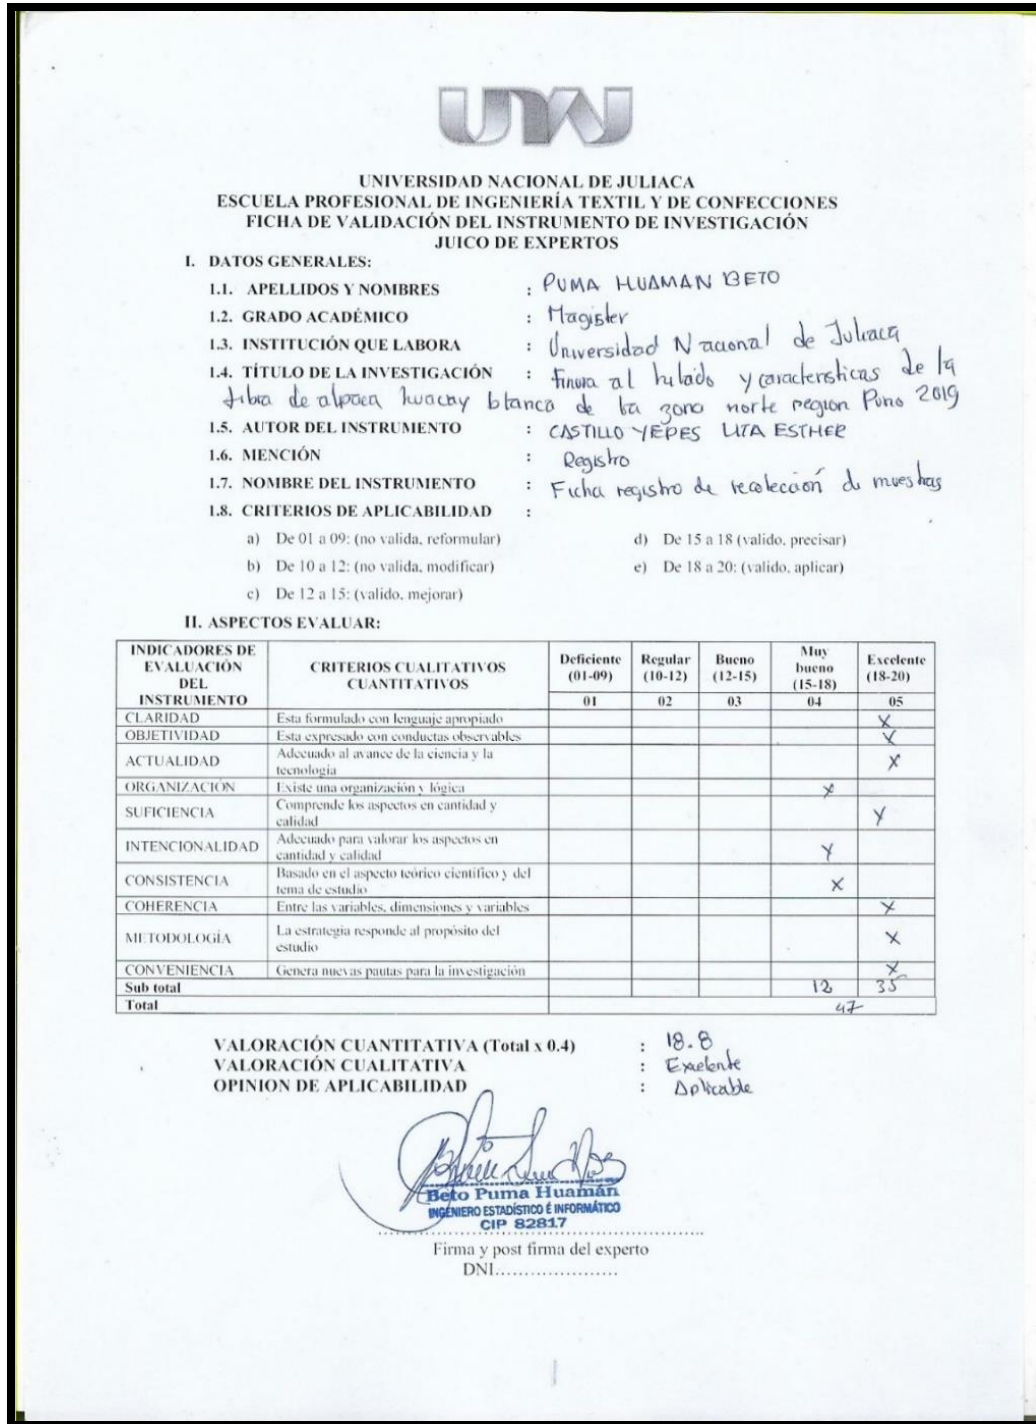 UNAJ
UNIVERSIDAD NACIONAL DE JULIACA
ESCUELA PROFESIONAL DE INGENIERÍA TEXTIL Y DE CONFECCIONES
FICHA DE VALIDACIÓN DEL INSTRUMENTO DE INVESTIGACIÓN
JUICO DE EXPERTOS
I. DATOS GENERALES:
1.1. APELLIDOS Y NOMBRES : PUMA HUAMAN BETO
1.2. GRADO ACADÉMICO : Magister
1.3. INSTITUCIÓN QUE LABORA : Universidad Nacional de Juliaca
1.4. TÍTULO DE LA INVESTIGACIÓN : finura al hilado y caracteristicas de la
fibra de alpaca huacay blanca de la zona norte region Puno 2019
1.5. AUTOR DEL INSTRUMENTO : CASTILLO YEPES LITA ESTHER
1.6. MENCIÓN : Registro
1.7. NOMBRE DEL INSTRUMENTO : Ficha registro de recolección de muestras
1.8. CRITERIOS DE APLICABILIDAD :
a) De 01 a 09: (no valida, reformular) d) De 15 a 18 (valido, precisar)
b) De 10 a 12: (no valida, modificar) e) De 18 a 20: (valido, aplicar)
c) De 12 a 15: (valido, mejorar)
II. ASPECTOS EVALUAR:
INDICADORES DE EVALUACIÓN DEL INSTRUMENTO CRITERIOS CUALITATIVOS CUANTITATIVOS Deficiente (01-09) Regular (10-12) Bueno (12-15) Muy bueno (15-18) Excelente (18-20)
01 02 03 04 05
CLARIDAD Esta formulado con lenguaje apropiado X
OBJETIVIDAD Esta expresado con conductas observables X
ACTUALIDAD Adecuado al avance de la ciencia y la tecnología X
ORGANIZACIÓN Existe una organización y lógica X
SUFICIENCIA Comprende los aspectos en cantidad y calidad X
INTENCIONALIDAD Adecuado para valorar los aspectos en cantidad y calidad X
CONSISTENCIA Basado en el aspecto teórico científico y del tema de estudio X
COHERENCIA Entre las variables, dimensiones y variables X
METODOLOGÍA La estrategia responde al propósito del estudio X
CONVENIENCIA Genera nuevas pautas para la investigación X
Sub total 12 35
Total 47
VALORACIÓN CUANTITATIVA (Total x 0.4) : 18.8
VALORACIÓN CUALITATIVA : Exelente
OPINION DE APLICABILIDAD : Aplicable
Beto Puma Huamán
INGENIERO ESTADÍSTICO É INFORMÁTICO
CIP 82817
Firma y post firma del experto
DNI.....................